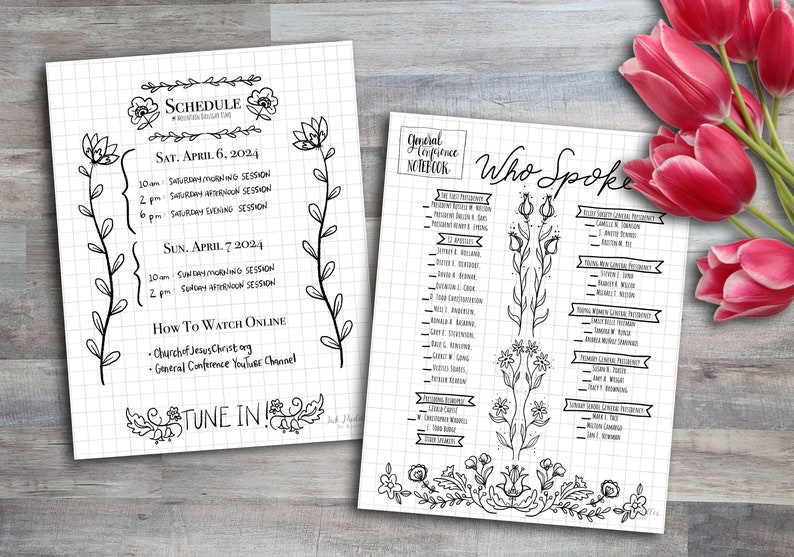 Schedule
* Mountain Daylight Time
Sat. April 6, 2024
10 am : Saturday Morning Session
2 pm : Saturday Afternoon Session
6 pm : Saturday Evening Session
Sun. April 7 2024
10 am : Sunday Morning Session
2 pm : Sunday Afternoon Session
How To Watch Online
• ChurchofJesusChrist.org
• General Conference YouTube Channel
TUNE IN!
General
Conference
NOTEBOOK
Who Spoke
The First Presidency
_ President Russell M. Nelson
_ President Dallin H. Oaks
_ President Henry B. Eyring
12 Apostles
_ Jeffrey R. Holland,
_ Dieter F. Uchtdorf,
_ David A. Bednar,
_ Quentin L. Cook,
_ D. Todd Christofferson
_ Neil L. Andersen,
_ Ronald A. Rasband,
_ Gary E. Stevenson,
_ Dale G. Renlund,
_ Gerrit W. Gong
_ Ulisses Soares,
_ Patrick Kearon
Presiding Bishopric
_ Gérald Caussé
_ W. Christopher Waddell
_ L. Todd Budge
Other Speakers
Relief Society General Presidency
_ Camille N. Johnson
_ J. Anette Dennis
_ Kristin M. Yee
Young Men General Presidency
_ Steven J. Lund
_ Bradley R. Wilcox
_ Michael T. Nelson
Young Women General Presidency
_ Emily Belle Freeman
_ Tamara W. Runia
_ Andrea Muñoz Spannaus
Primary General Presidency
_ Susan H. Porter
_ Amy A. Wright
_ Tracy Y. Browning
Sunday School General Presidency
_ Mark L. Pace
_ Milton Camargo
_ Jan E. Newman